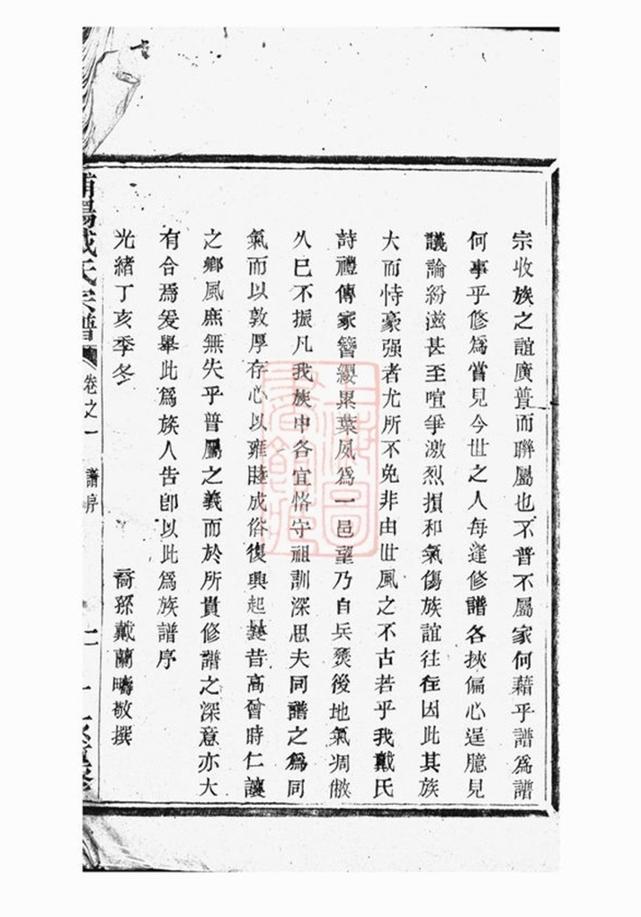 宗收族之誼廣普而聯屬也不普不屬家何藉乎譜為譜
何事乎修為嘗見今世之人每逢修譜各挾偏心逞臆見
議論紛滋甚至喧爭激烈損和氣傷族誼往往因此其族
大而恃豪强者尤所不免非由世風之不古若乎我戴氏
詩禮傳家簪纓累葉夙為一邑望乃自兵燹後地氣凋敝
久已不振凡我族中各宜恪守祖訓深思夫同譜之為同
氣而以敦厚存心以雍睦成俗復興起曩昔高曾時仁讓
之鄉風庶無失乎普屬之義而於所貴修譜之深意亦大
有合焉爰舉此為族人告卽以此為族譜序
光緒丁亥季冬
裔孫戴蘭疇敬撰
陽戴氏宗譜
卷之一
譜序